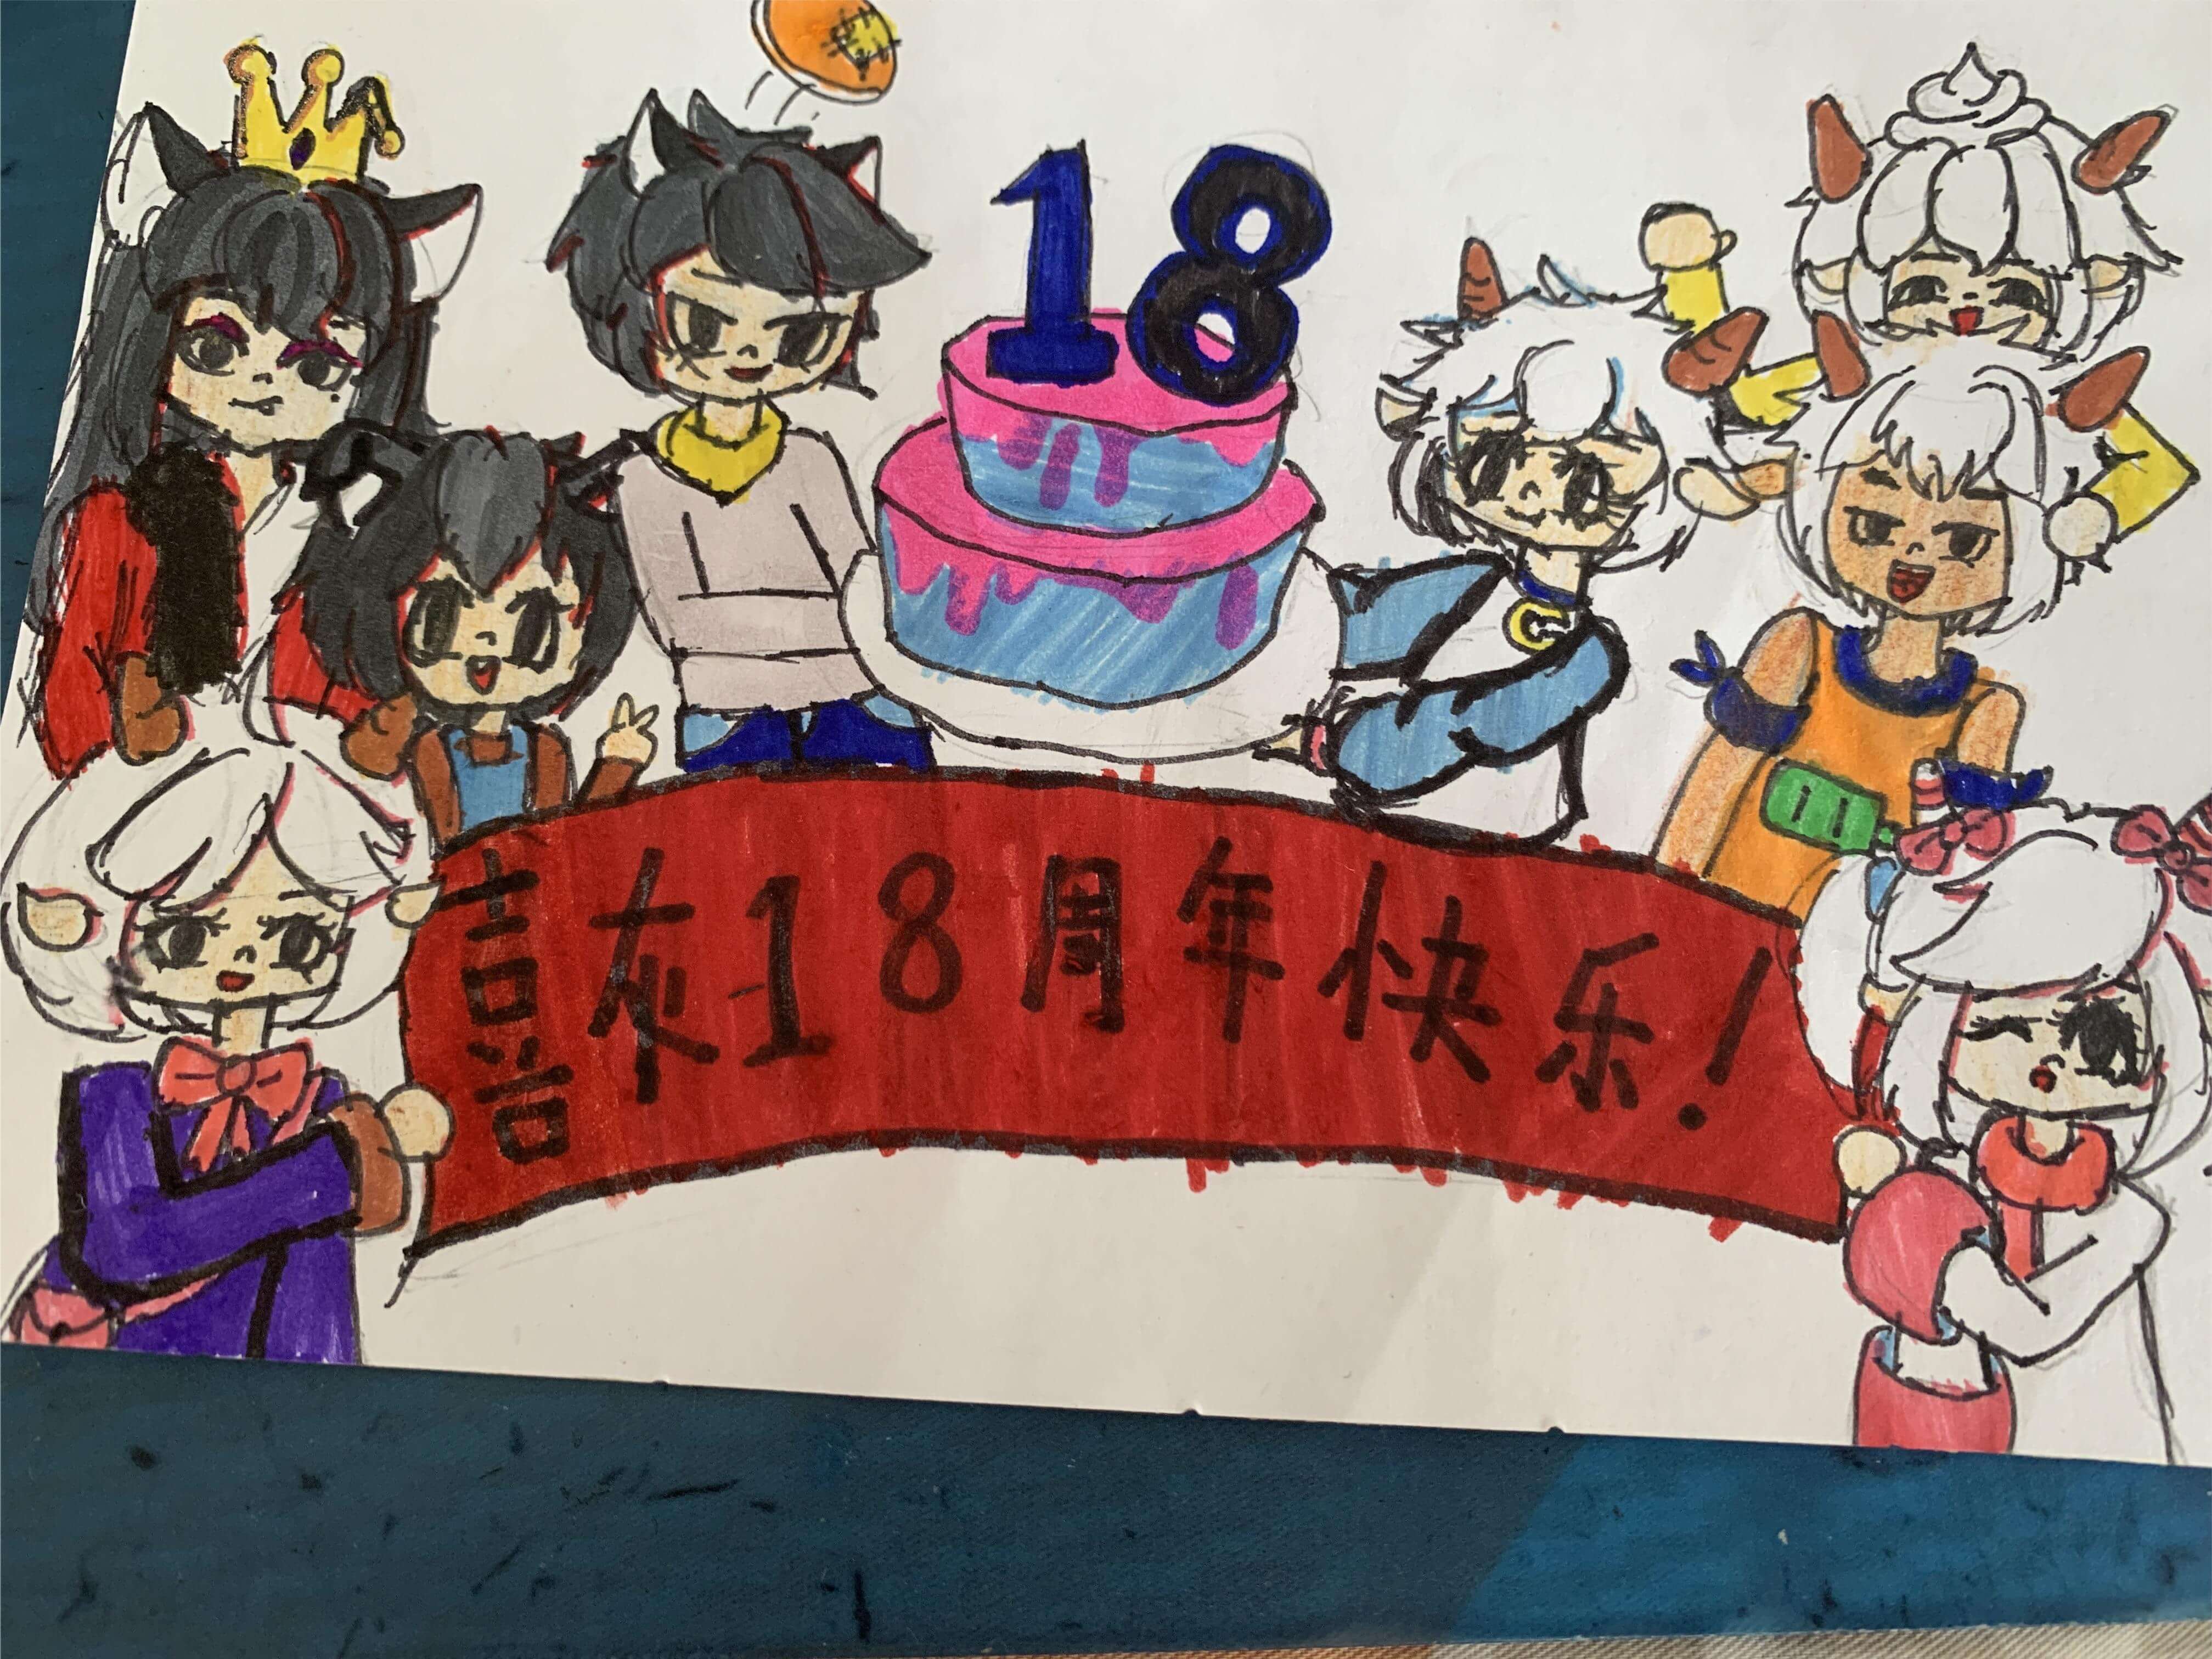 18
喜灰18周年快乐!